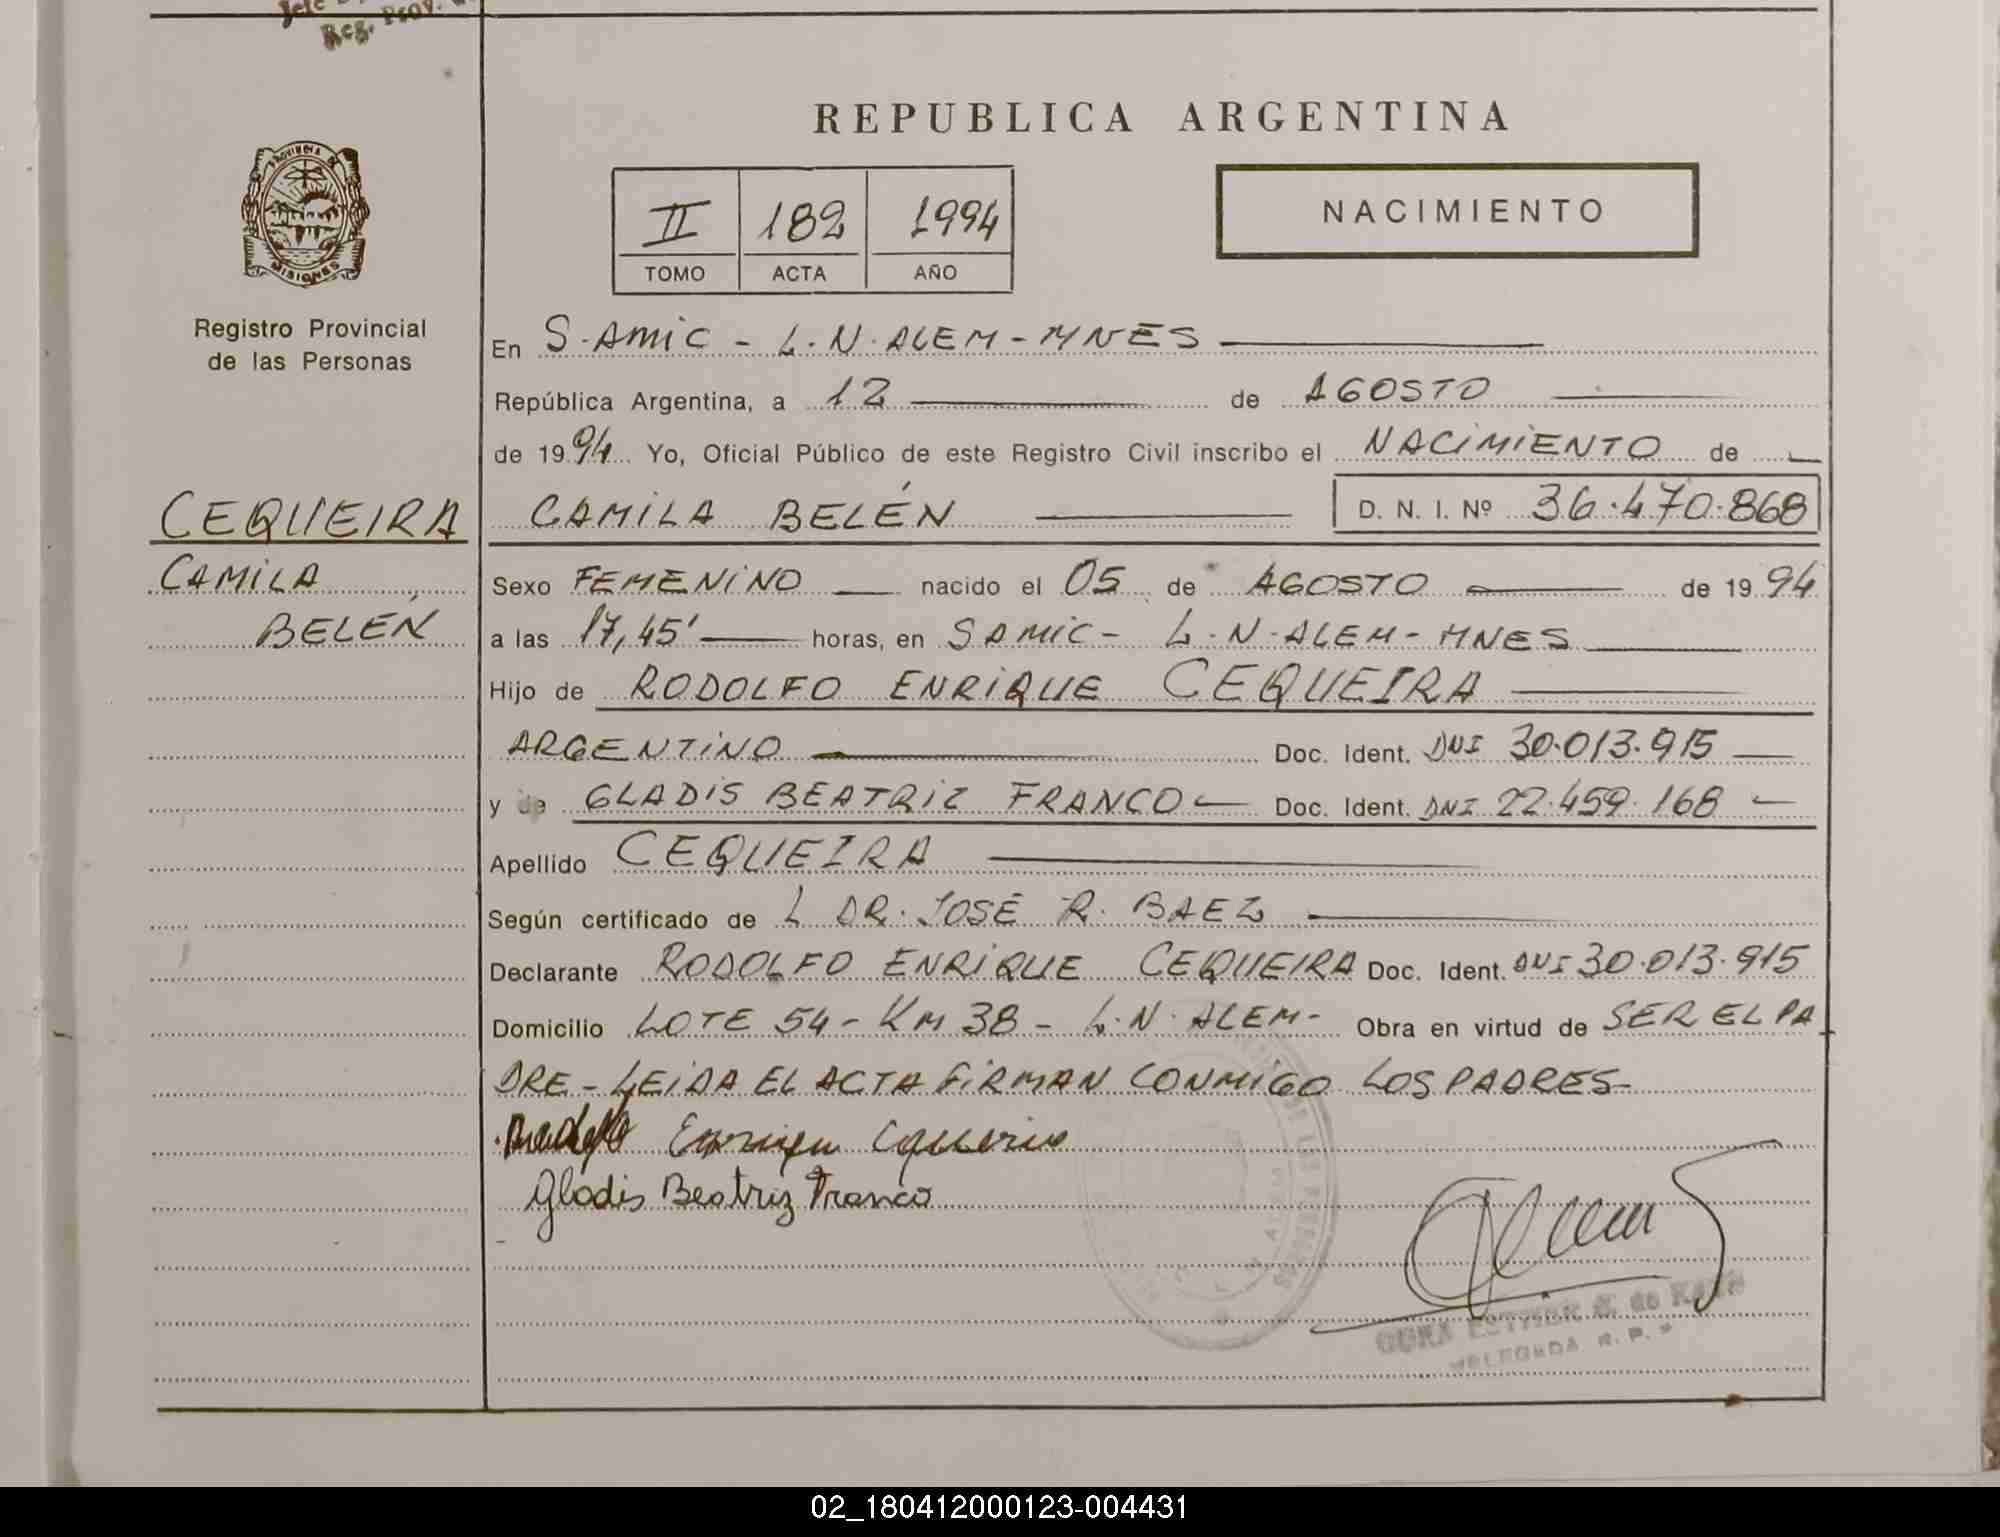 Jefe
Reg. Prov.
REPUBLICA ARGENTINA
PROVINCIA DE
MISIONES
II 182 1994
TOMO ACTA AÑO
NACIMIENTO
Registro Provincial
de las Personas
En S.AMIC - L.N.ALEM - MNES
República Argentina, a 12 de AGOSTO
de 1994 Yo, Oficial Público de este Registro Civil inscribo el NACIMIENTO de
CEQUEIRA CAMILA BELÉN D. N. I. Nº 36.470.868
CAMILA Sexo FEMENINO nacido el 05 de AGOSTO de 1994
BELÉN a las 17,45' horas, en SAMIC - L.N.ALEM - MNES
Hijo de RODOLFO ENRIQUE CEQUEIRA
ARGENTINO Doc. Ident. DNI 30.013.915
y de GLADIS BEATRIZ FRANCO Doc. Ident. DNI 22.459.168
Apellido CEQUEIRA
Según certificado de L DR. JOSÉ R. BAEZ
Declarante RODOLFO ENRIQUE CEQUEIRA Doc. Ident. DNI 30.013.915
Domicilio LOTE 54 - KM 38 - L.N.ALEM - Obra en virtud de SER EL PA
DRE - LEIDA EL ACTA FIRMAN CONMIGO LOS PADRES
Gladis Beatriz Franco
DELEGADA R. P.
02_180412000123-004431